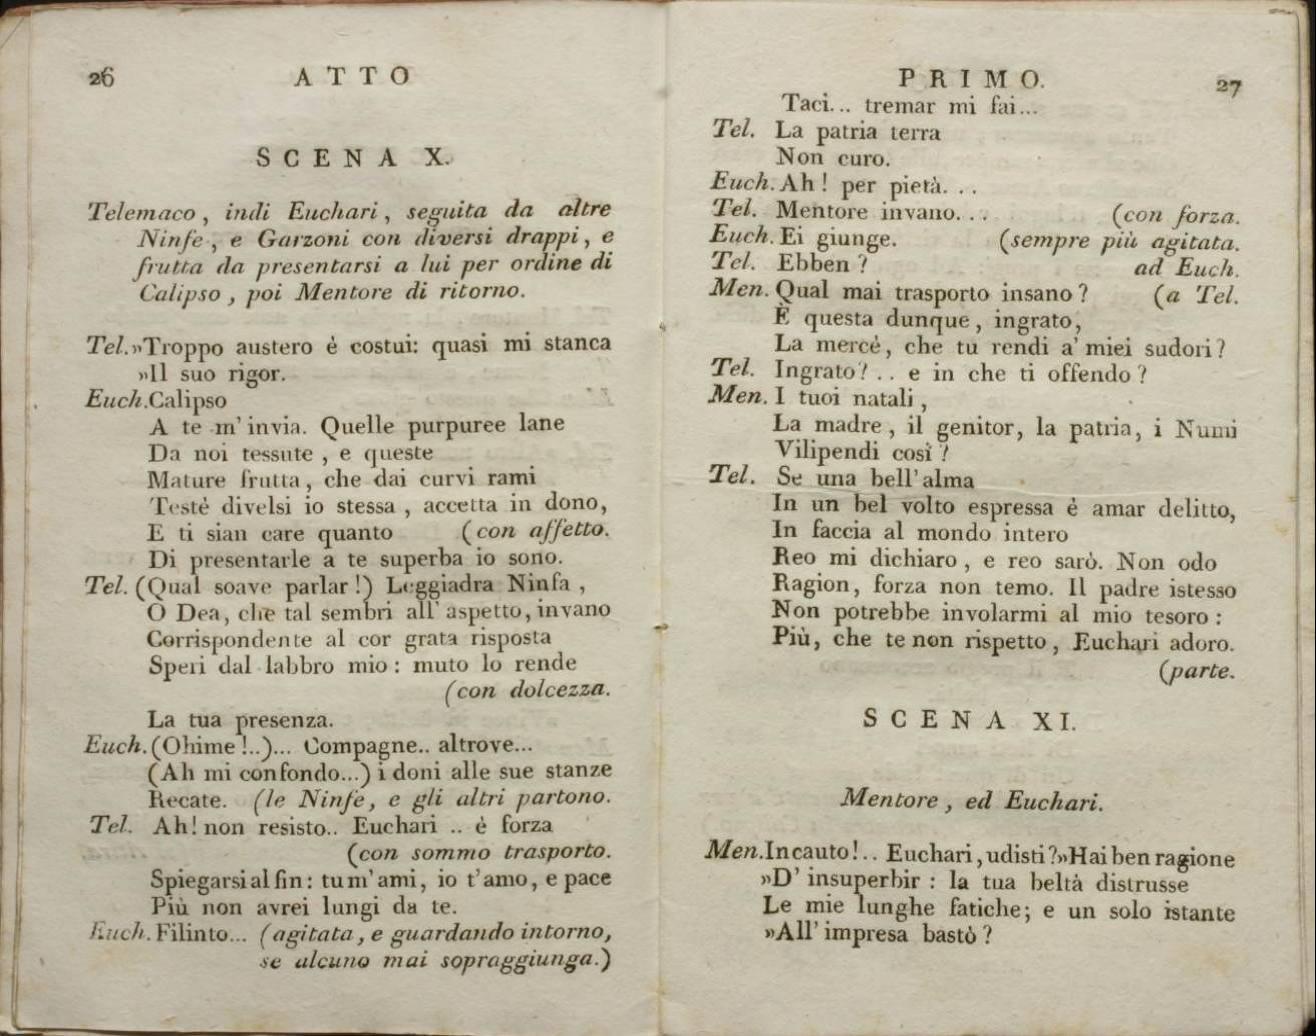 26
ATTO
SCENA X.
Telemaco, indi Euchari, seguita da altre
Ninfe, e Garzoni con diversi drappi, e
frutta da presentarsi a lui per ordine di
Calipso, poi Mentore di ritorno.
Tel. »Troppo austero è costui: quasi mi stanca
»Il suo rigor.
Euch. Calipso
A te m'invia. Quelle purpuree lane
Da noi tessute, e queste
Mature frutta, che dai curvi rami
Testè divelsi io stessa, accetta in dono,
E ti sian care quanto (con affetto.
Di presentarle a te superba io sono.
Tel. (Qual soave parlar!) Leggiadra Ninfa,
O Dea, che tal sembri all'aspetto, invano
Corrispondente al cor grata risposta
Speri dal labbro mio: muto lo rende
(con dolcezza.
La tua presenza.
Euch. (Ohime!..)... Compagne.. altrove...
(Ah mi confondo...) i doni alle sue stanze
Recate. (le Ninfe, e gli altri partono.
Tel. Ah! non resisto.. Euchari .. è forza
(con sommo trasporto.
Spiegarsi al fin: tu m'ami, io t'amo, e pace
Più non avrei lungi da te.
Euch. Filinto... (agitata, e guardando intorno,
se alcuno mai sopraggiunga.)
PRIMO.
27
Taci... tremar mi fai...
Tel. La patria terra
Non curo.
Euch. Ah! per pietà...
Tel. Mentore invano... (con forza.
Euch. Ei giunge. (sempre più agitata.
Tel. Ebben? ad Euch.
Men. Qual mai trasporto insano? (a Tel.
È questa dunque, ingrato,
La mercé, che tu rendi a' miei sudori?
Tel. Ingrato?.. e in che ti offendo?
Men. I tuoi natali,
La madre, il genitor, la patria, i Numi
Vilipendi così?
Tel. Se una bell'alma
In un bel volto espressa è amar delitto,
In faccia al mondo intero
Reo mi dichiaro, e reo sarò. Non odo
Ragion, forza non temo. Il padre istesso
Non potrebbe involarmi al mio tesoro:
Più, che te non rispetto, Euchari adoro.
(parte.
SCENA XI.
Mentore, ed Euchari.
Men. Incauto!.. Euchari, udisti? »Hai ben ragione
»D'insuperbir: la tua beltà distrusse
Le mie lunghe fatiche; e un solo istante
»All'impresa bastò?